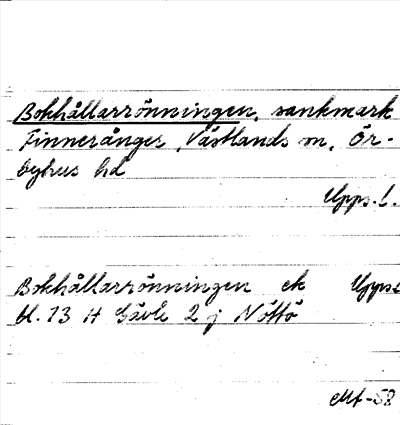 Bokhållarrönningen, sankmark
Finneränger, Västlands sn, Ör-
byhus hd
Upps. l.
Bokhållarrönningen ek Upps
bl. 13 H Gävle 2 j Nöttö
Mf-58